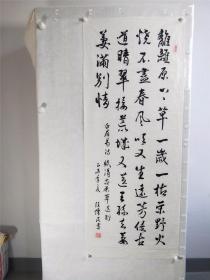 離離原上草一歲一枯榮野火
燒不盡春風吹又生遠芳侵古
道晴翠接荒城又送王孫去萋
萋滿別情
白居易詩 賦得古原草送別